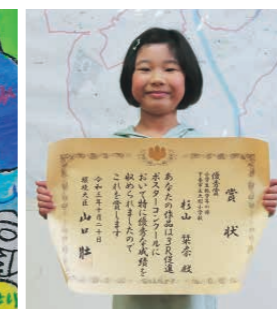 賞状
優秀賞
小学生低学年の部
杉山 栞奈 殿
あなたの作品は3R促進
ポスターコンクールに
おいて特に優秀な成績を
収められましたので
これを賞します
令和三年十月二十日
環境大臣 山口 壯